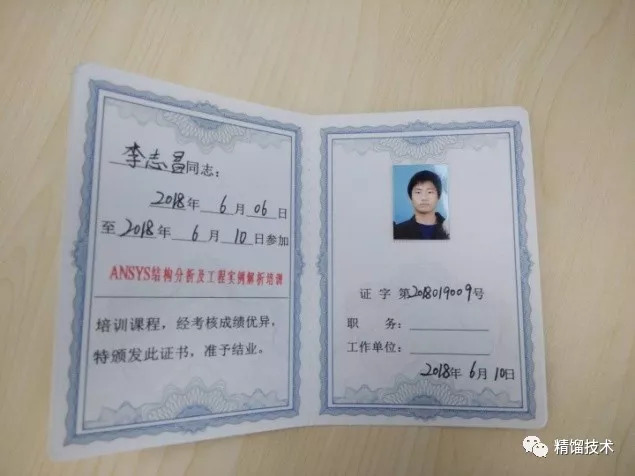 李志昌同志：
2018年 6 月 06 日
至 2018年 6 月 10 日参加
ANSYS结构分析及工程实例解析培训
培训课程，经考核成绩优异，
特颁发此证书，准予结业。
证 字 第2018019009号
职 务：
工作单位：
2018年 6 月 10日
精馏技术